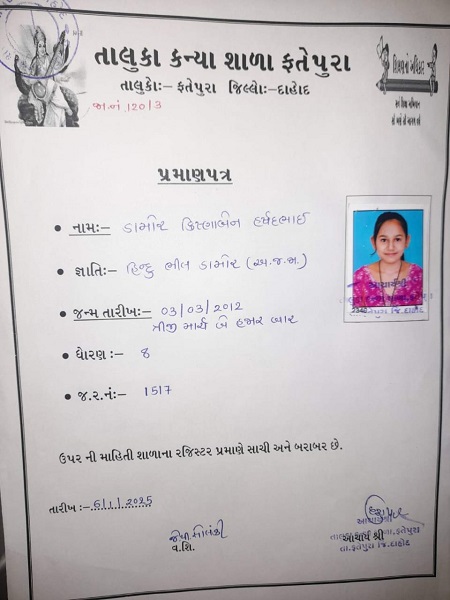 તાલુકા કન્યા શાળા ફતેપુરા
તાલુકોઃ– ફતેપુરા જિલ્લોઃ–દાહોદ
જા.નં. 120/3
પ્રમાણપત્ર
• નામઃ– ડામોર ક્રિષ્ણાબેન હર્ષદભાઈ
• જ્ઞાતિઃ– હિન્દુ ભીલ ડામોર (અ.જ.જા.)
• જન્મ તારીખઃ– 03/03/2012
ત્રીજી માર્ચ બે હજાર બાર
• ધોરણઃ– 8
• જ.ર.નંઃ– 1517
આચાર્યશ્રી
ઉપર ની માહિતી શાળાના રજિસ્ટર પ્રમાણે સાચી અને બરાબર છે.
તારીખઃ– 6/1/2025
વ.શિ.
આચાર્યશ્રી
આચાર્ય શ્રી
તા.ફતેપુરા જિ.દાહોદ